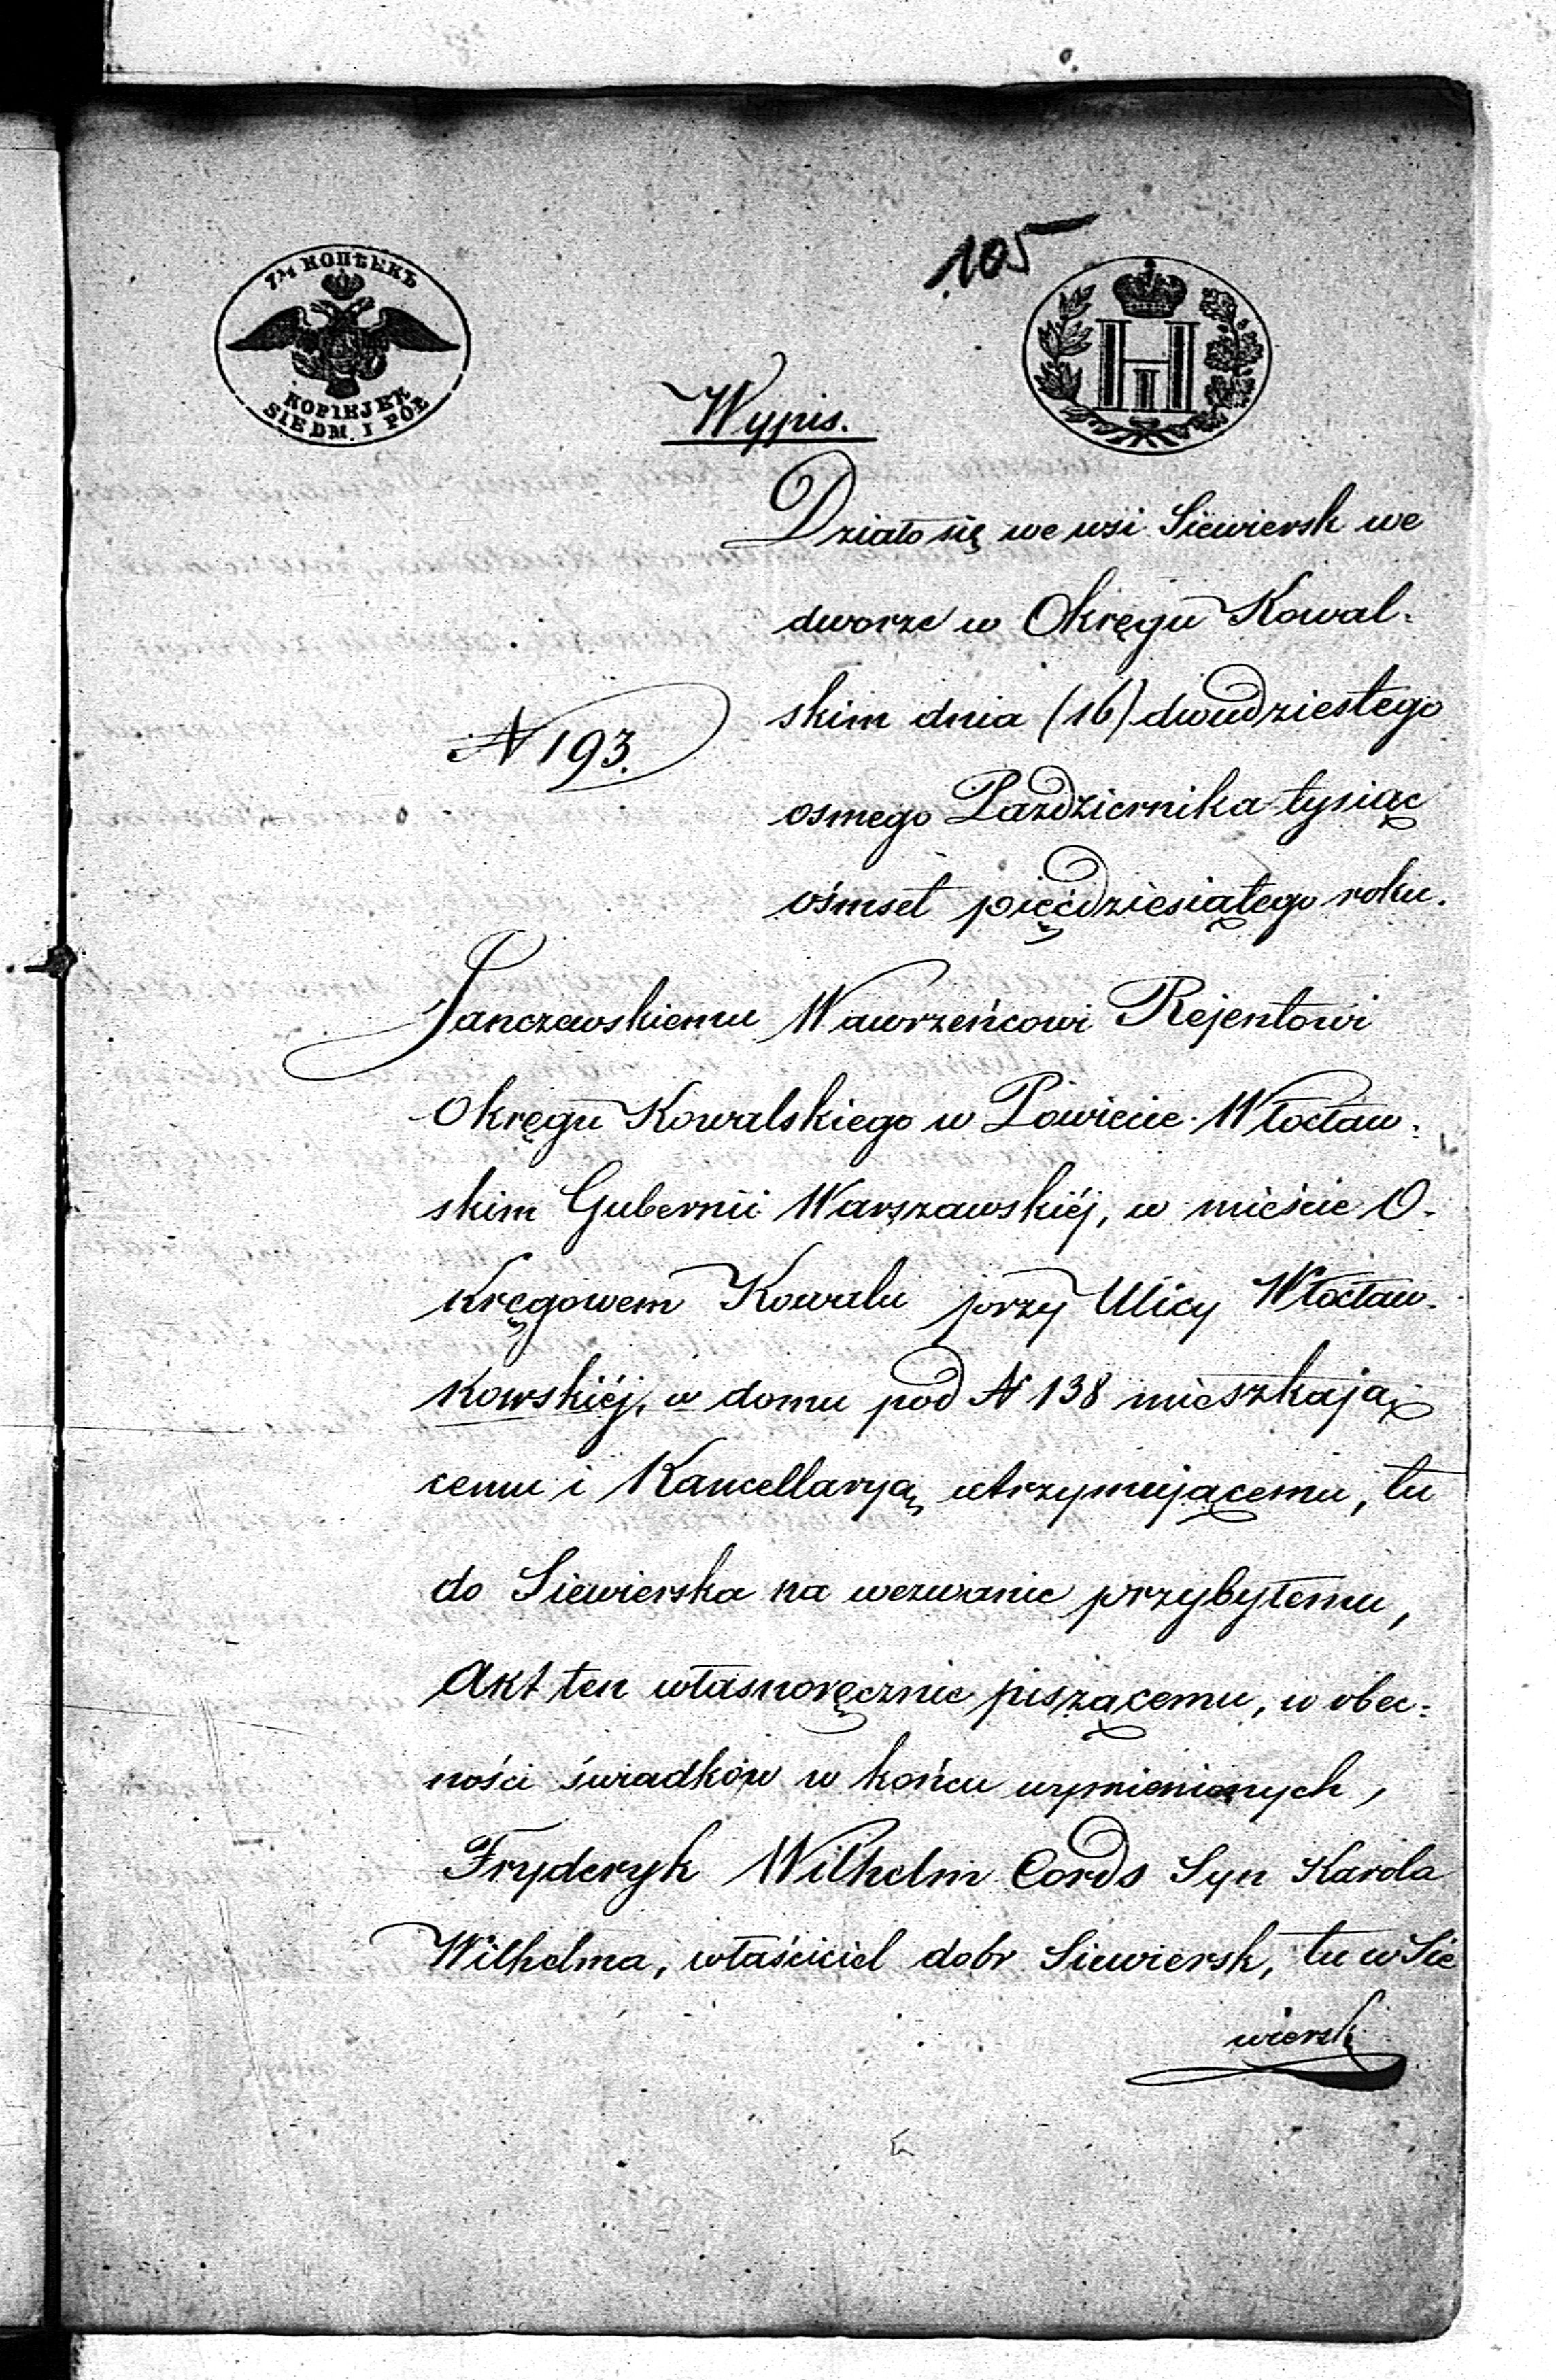 105
7½ КОПѢЕКЪ
KOPIEJEK
SIEDM. I PÓŁ
Н I
Wypis.
Działo się we wsi Siewiersk we
dworze w Okręgu Kowal=
skim dnia (16) dwudziestego
№ 193.
osmego Pazdziernika tysiąc
ośmset pięćdziesiątego roku.
Janczewskiemu Wawrzeńcowi Rejentowi
Okręgu Kowalskiego w Powiecie Włocław=
skim Gubernii Warszawskiéj, w mieście O=
kręgowem Kowalu przy Ulicy Włocław=
kowskiéj, w domu pod № 138 mieszkają
cemu i Kancellaryą utrzymującemu, tu
do Siewierska na wezwanie przybyłemu,
Akt ten własnoręcznie piszącemu, w obec=
ności świadków w końcu wymienionych,
Fryderyk Wilhelm Cords Syn Karola
Wilhelma, właściciel dobr Siewiersk, tu w Sie
wiersk